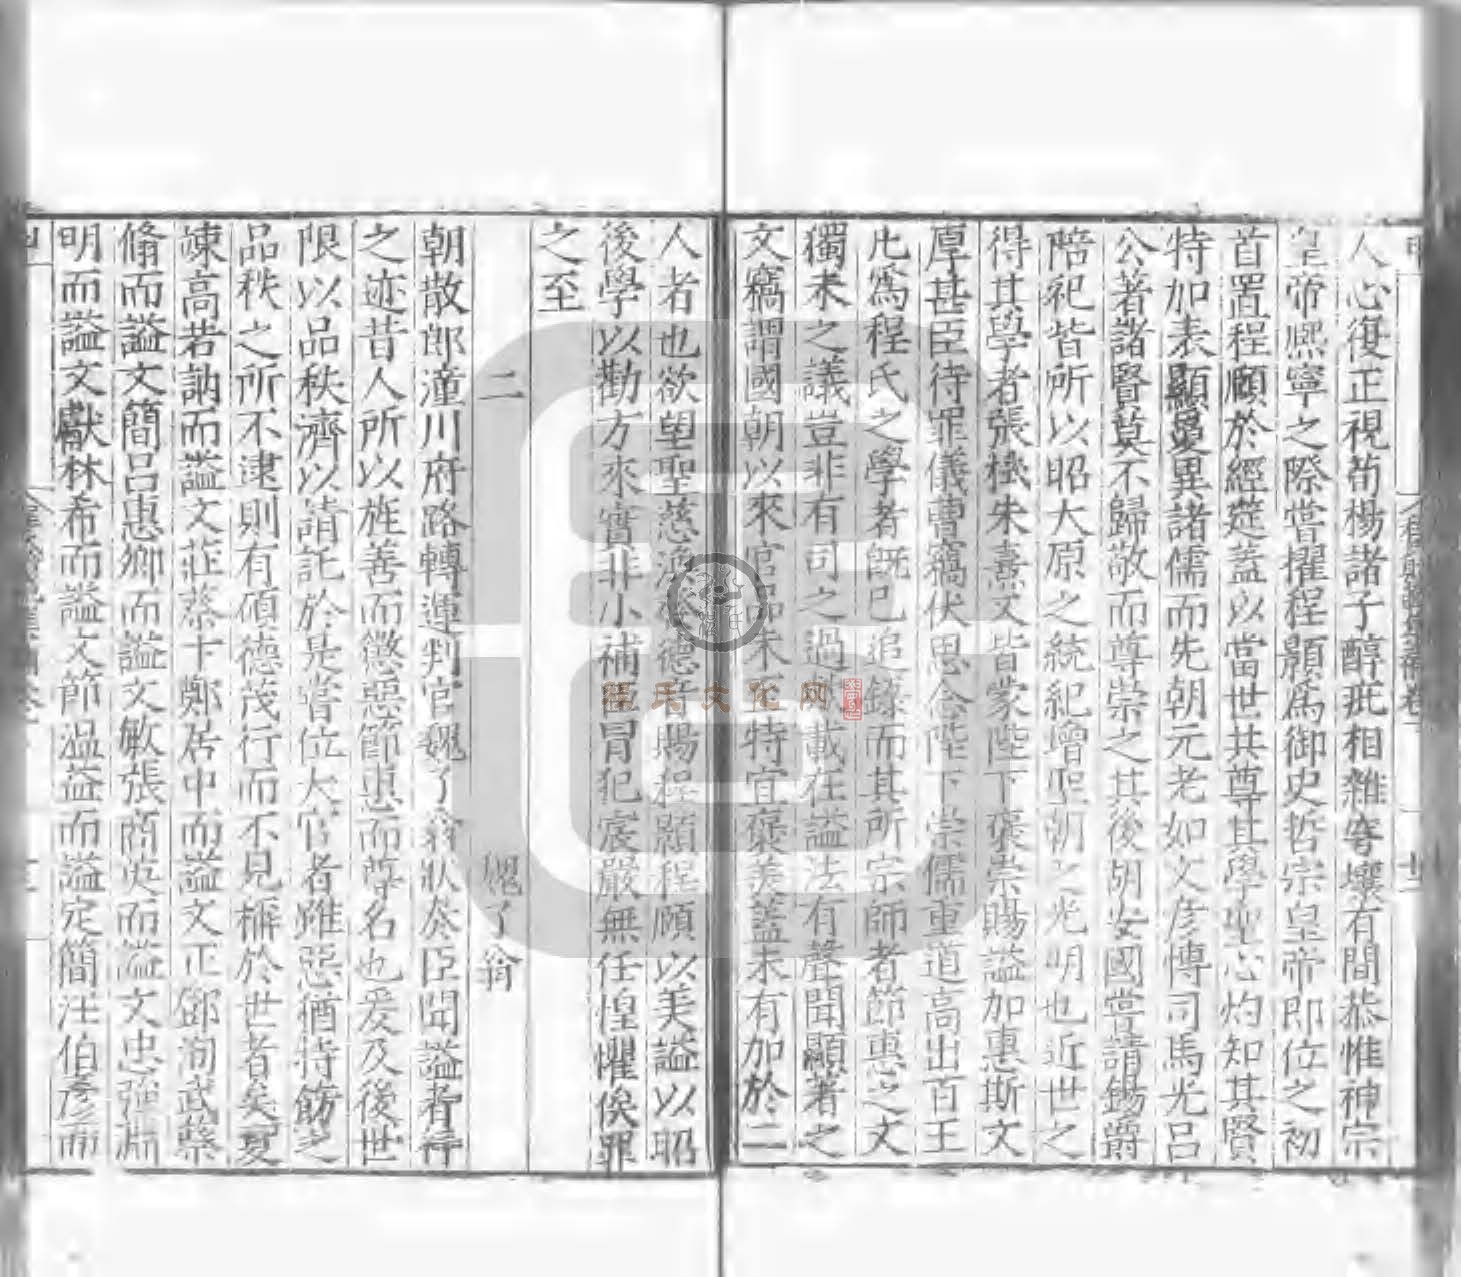 人心復正視荀楊諸子醇疵相雜寧壤有間恭惟神宗
皇帝熙寧之際嘗擢程顥爲御史哲宗皇帝即位之初
首置程頤於經筵蓋以當世共尊其學聖心灼知其賢
特加表顯曼異諸儒而先朝元老如文彦博司馬光呂
公著諸賢莫不歸敬而尊崇之其後胡安國嘗請錫爵
陪祀皆所以昭大原之統紀增聖朝之光明也近世之
得其學者張栻朱熹又皆蒙陛下褒崇賜謚加惠斯文
厚甚臣待罪儀曹竊伏思念陛下崇儒重道高出百王
凡爲程氏之學者旣已追錄而其所宗師者節惠之文
獨未之議豈非有司之過載在謚法有聲聞顯著之
文竊謂國朝以來官品未特宜褒美蓋未有加於二
人者也欲望聖慈渙發德音賜程顥程頤以美謚以昭
後學以勸方來實非小補臣冒犯宸嚴無任惶懼俟罪
之至
二 魏了翁
朝散郎潼川府路轉運判官魏了翁狀奏臣聞謚者行
之迹昔人所以旌善而懲惡節惠而尊名也爰及後世
限以品秩濟以請託於是嘗位大官者雖惡猶得飾之
品秩之所不逮則有碩德茂行而不見稱於世者矣夏
竦高若訥而謚文莊蔡卞鄭居中而謚文正鄧洵武蔡
翛而謚文簡呂惠卿而謚文敏張商英而謚文忠強淵
明而謚文獻林希而謚文節温益而謚定簡汪伯彦而
程氏文化网